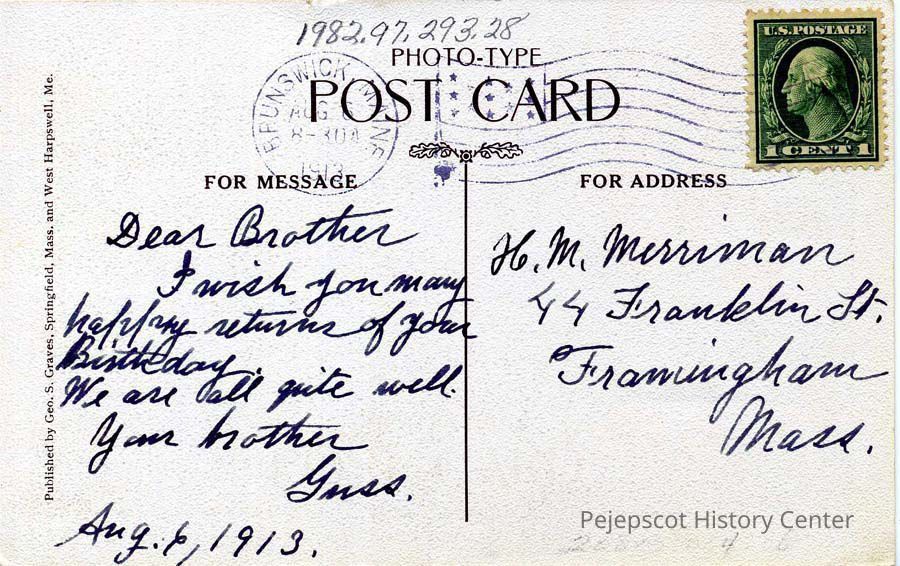 1982.97.293.28
PHOTO-TYPE
POST CARD
BRUNSWICK MAINE
AUG
8-30A
1913
U.S. POSTAGE
1 CENT 1
FOR MESSAGE
FOR ADDRESS
Published by Geo. S. Graves, Springfield, Mass. and West Harpswell, Me.
Dear Brother
I wish you many
happy returns of your
Birthday.
We are all quite well.
Your brother
Guss.
Aug. 6, 1913.
H. M. Merriman
44 Franklin St.
Framingham
Mass.
Pejepscot History Center